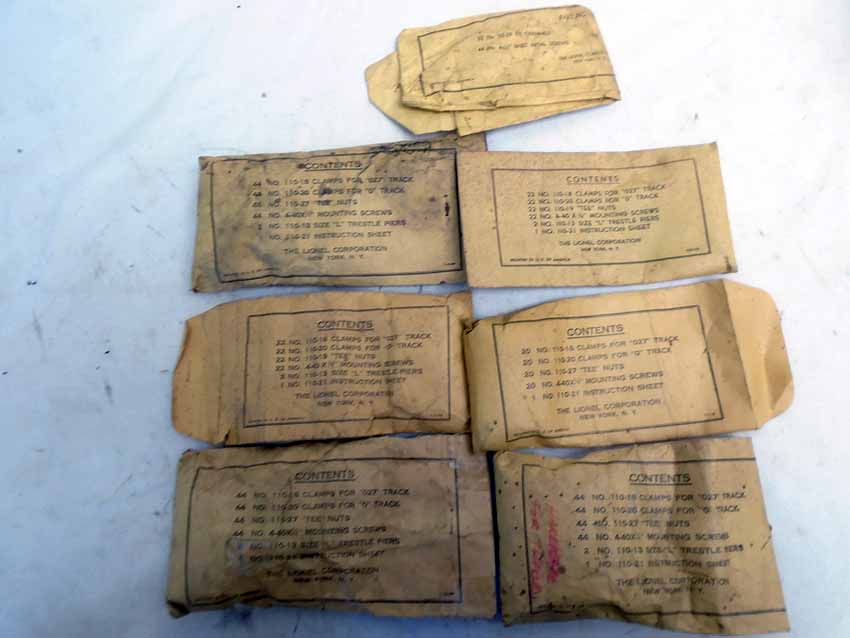 44 NO. SHEET METAL SCREWS
THE LIONEL
NEW YORK, N.Y.
CONTENTS
44 NO. 110-18 CLAMPS FOR "027" TRACK
44 NO. 110-20 CLAMPS FOR "O" TRACK
44 NO. 110-27 "TEE" NUTS
44 NO. 4-40X⅜" MOUNTING SCREWS
2 NO. 110-13 SIZE "L" TRESTLE PIERS
NO. 110-21 INSTRUCTION SHEET
THE LIONEL CORPORATION
NEW YORK, N. Y.
CONTENTS
22 NO. 110-18 CLAMPS FOR "027" TRACK
22 NO. 110-20 CLAMPS FOR "O" TRACK
22 NO. 110-19 "TEE" NUTS
22 NO. 4-40 X ⅜" MOUNTING SCREWS
2 NO. 110-13 SIZE "L" TRESTLE PIERS
1 NO. 110-21 INSTRUCTION SHEET
THE LIONEL CORPORATION
NEW YORK, N. Y.
PRINTED IN U.S. OF AMERICA
CONTENTS
22 NO. 110-18 CLAMPS FOR "027" TRACK
22 NO. 110-20 CLAMPS FOR "O" TRACK
22 NO. 110-19 "TEE" NUTS
22 NO. 4-40 X ⅜" MOUNTING SCREWS
2 NO. 110-13 SIZE "L" TRESTLE PIERS
1 NO. 110-21 INSTRUCTION SHEET
THE LIONEL CORPORATION
NEW YORK, N. Y.
CONTENTS
20 NO. 110-18 CLAMPS FOR "027" TRACK
20 NO. 110-20 CLAMPS FOR "O" TRACK
20 NO. 110-27 "TEE" NUTS
20 NO. 4-40X⅜" MOUNTING SCREWS
1 NO. 110-21 INSTRUCTION SHEET
THE LIONEL CORPORATION
NEW YORK, N. Y.
CONTENTS
44 NO. 110-18 CLAMPS FOR "027" TRACK
44 NO. 110-20 CLAMPS FOR "O" TRACK
44 NO. 110-27 "TEE" NUTS
44 NO. 4-40X⅜" MOUNTING SCREWS
NO. 110-13 SIZE "L" TRESTLE PIERS
NO. 110-21 INSTRUCTION SHEET
THE LIONEL CORPORATION
NEW YORK, N. Y.
CONTENTS
44 NO. 110-18 CLAMPS FOR "027" TRACK
44 NO. 110-20 CLAMPS FOR "O" TRACK
44 NO. 110-27 "TEE" NUTS
44 NO. 4-40X⅜" MOUNTING SCREWS
2 NO. 110-13 SIZE "L" TRESTLE PIERS
1 NO. 110-21 INSTRUCTION SHEET
THE LIONEL CORPORATION
NEW YORK, N. Y.